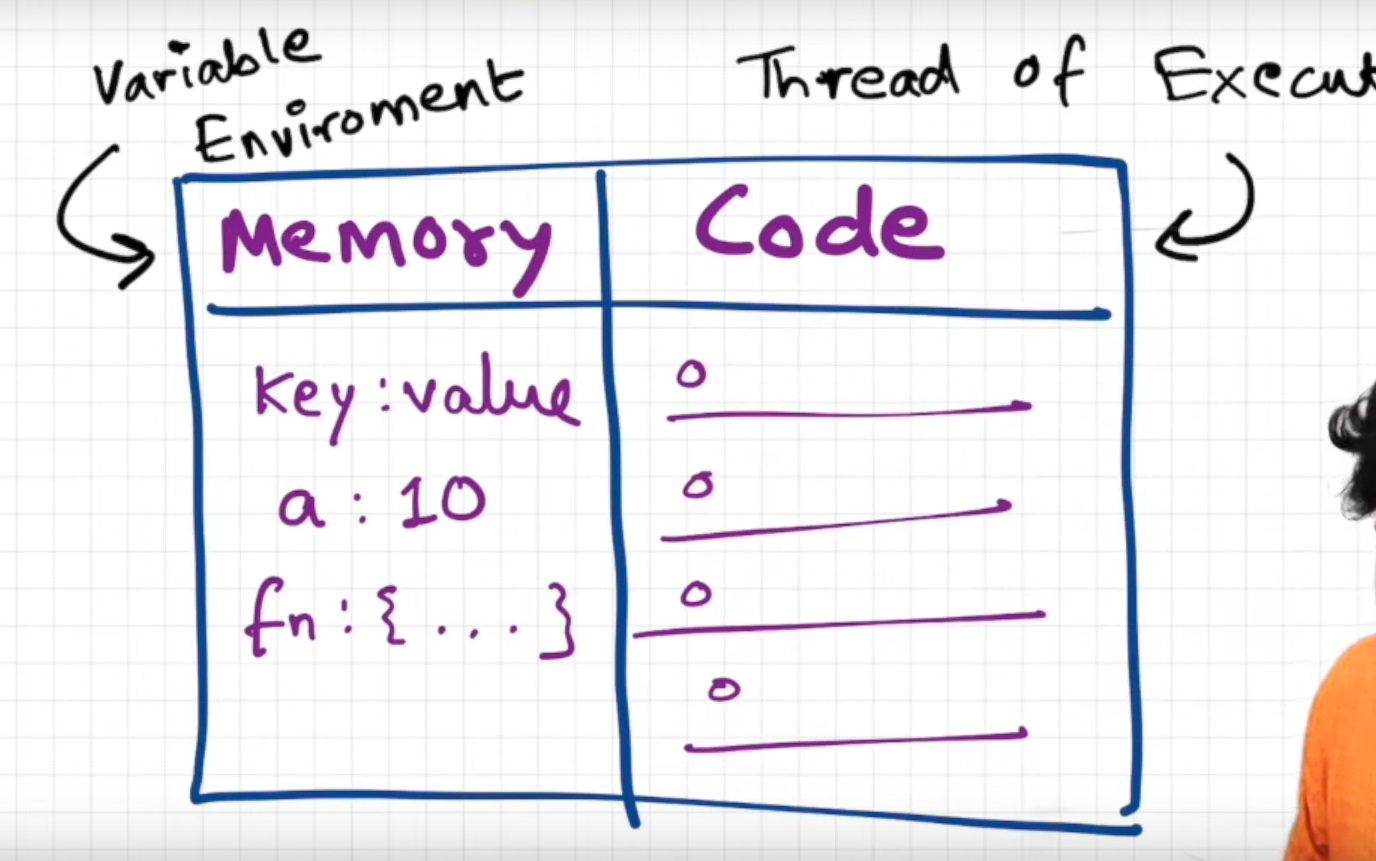 Variable
Enviroment
Thread of Execut
Memory
Code
key : value
a : 10
fn : { ... }